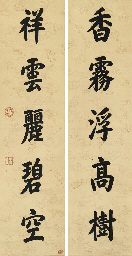 香霧浮高樹
祥雲麗碧空